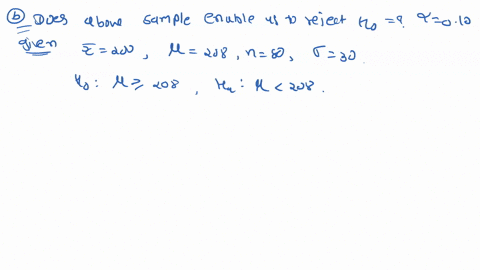 (b) Does above sample enable us to reject H₀ = ? α=0.10
given x̄=200, μ=208, n=80, σ=30.
H₀: μ ≥ 208, Hₐ: μ < 208.